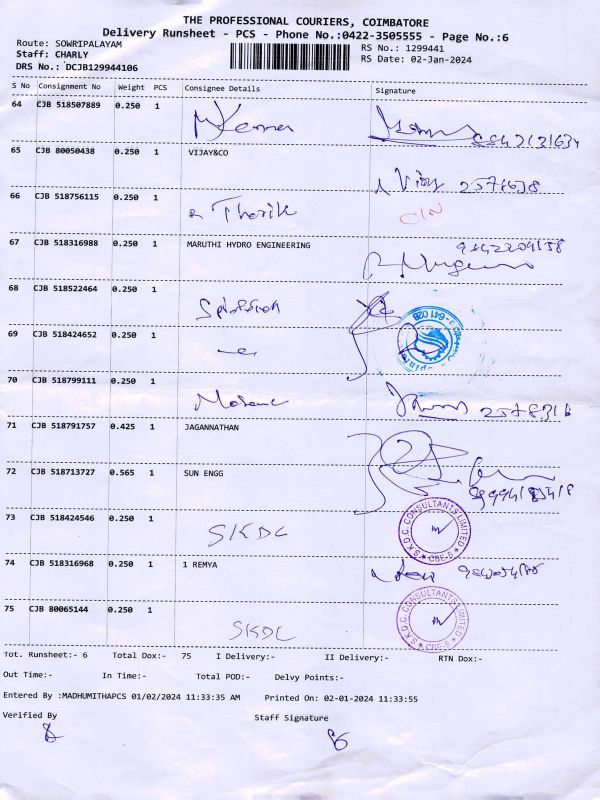 THE PROFESSIONAL COURIERS, COIMBATORE
Delivery Runsheet - PCS - Phone No.:0422-3505555 - Page No.:6
Route: SOWRIPALAYAM
RS No.: 1299441
Staff: CHARLY
RS Date: 02-Jan-2024
DRS No.: DCJB129944106
S No Consignment No Weight PCS Consignee Details Signature
64 CJB 518507889 0.250 1
65 CJB 80050438 0.250 1 VIJAY&CO
66 CJB 518756115 0.250 1
67 CJB 518316988 0.250 1 MARUTHI HYDRO ENGINEERING
68 CJB 518522464 0.250 1
69 CJB 518424652 0.250 1
70 CJB 518799111 0.250 1
71 CJB 518791757 0.425 1 JAGANNATHAN
72 CJB 518713727 0.565 1 SUN ENGG
73 CJB 518424546 0.250 1 SKDC S.K.D.C. CONSULTANTS LIMITED CBE-6
74 CJB 518316968 0.250 1 1 REMYA
75 CJB 80065144 0.250 1 SKDC S.K.D.C. CONSULTANTS LIMITED CBE-6
Tot. Runsheet:- 6 Total Dox:- 75 I Delivery:- II Delivery:- RTN Dox:-
Out Time:- In Time:- Total POD:- Delvy Points:-
Entered By :MADHUMITHAPCS 01/02/2024 11:33:35 AM Printed On: 02-01-2024 11:33:55
Verified By Staff Signature